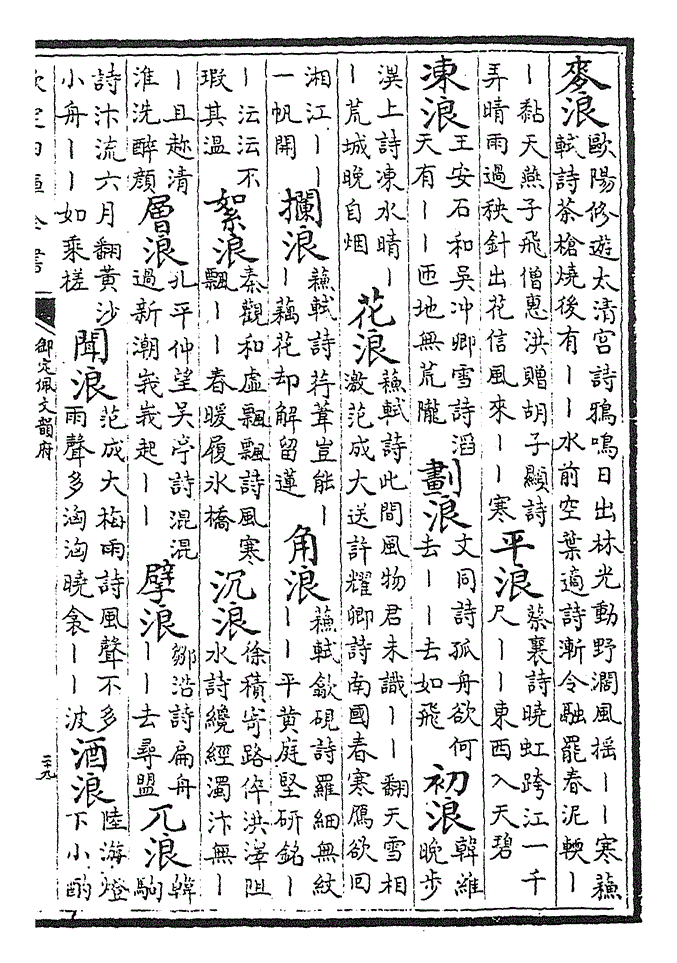 麥浪 歐陽修遊太清宮詩鴉鳴日出林光動野濶風揺丨丨寒蘇
軾詩茶槍燒後有丨丨水前空葉適詩漸令融罷春泥輭丨
丨黏天燕子飛僧惠洪贈胡子顯詩
弄晴雨過秧針出花信風來丨丨寒
平浪 蔡襄詩曉虹跨江一千
尺丨丨東西入天碧
凍浪 王安石和吳冲卿雪詩滔
天有丨丨匝地無荒隴
劃浪 文同詩孤舟欲何
去丨丨去如飛
初浪 韓維
晚步
淏上詩凍水晴丨
丨荒城晚自烟
花浪 蘇軾詩此間風物君未識丨丨翻天雪相
激范成大送許耀卿詩南國春寒鴈欲回
湘江丨丨
一帆開
攔浪 蘇軾詩荇葦豈能丨
丨藕花却解留蓮
角浪 蘇軾歙硯詩羅細無紋
丨丨平黄庭堅研銘丨
丨沄沄不
瑕其温
絮浪 秦觀和虛飄飄詩風寒
飄丨丨春暖履氷橋
沉浪 徐積寄路倅洪澤阻
水詩纔經濁汴無丨
丨且趂清
淮洗醉顔
層浪 孔平仲望吳亭詩混混
過新潮峩峩起丨丨
擘浪 鄒浩詩扁舟
丨丨去尋盟
兀浪 韓
駒
詩汴流六月翻黄沙
小舟丨丨如乘槎
聞浪 范成大梅雨詩風聲不多
雨聲多洶洶曉衾丨丨波
酒浪 陸游燈
下小酌
欽定四庫全書
御定佩文韻府
二十九